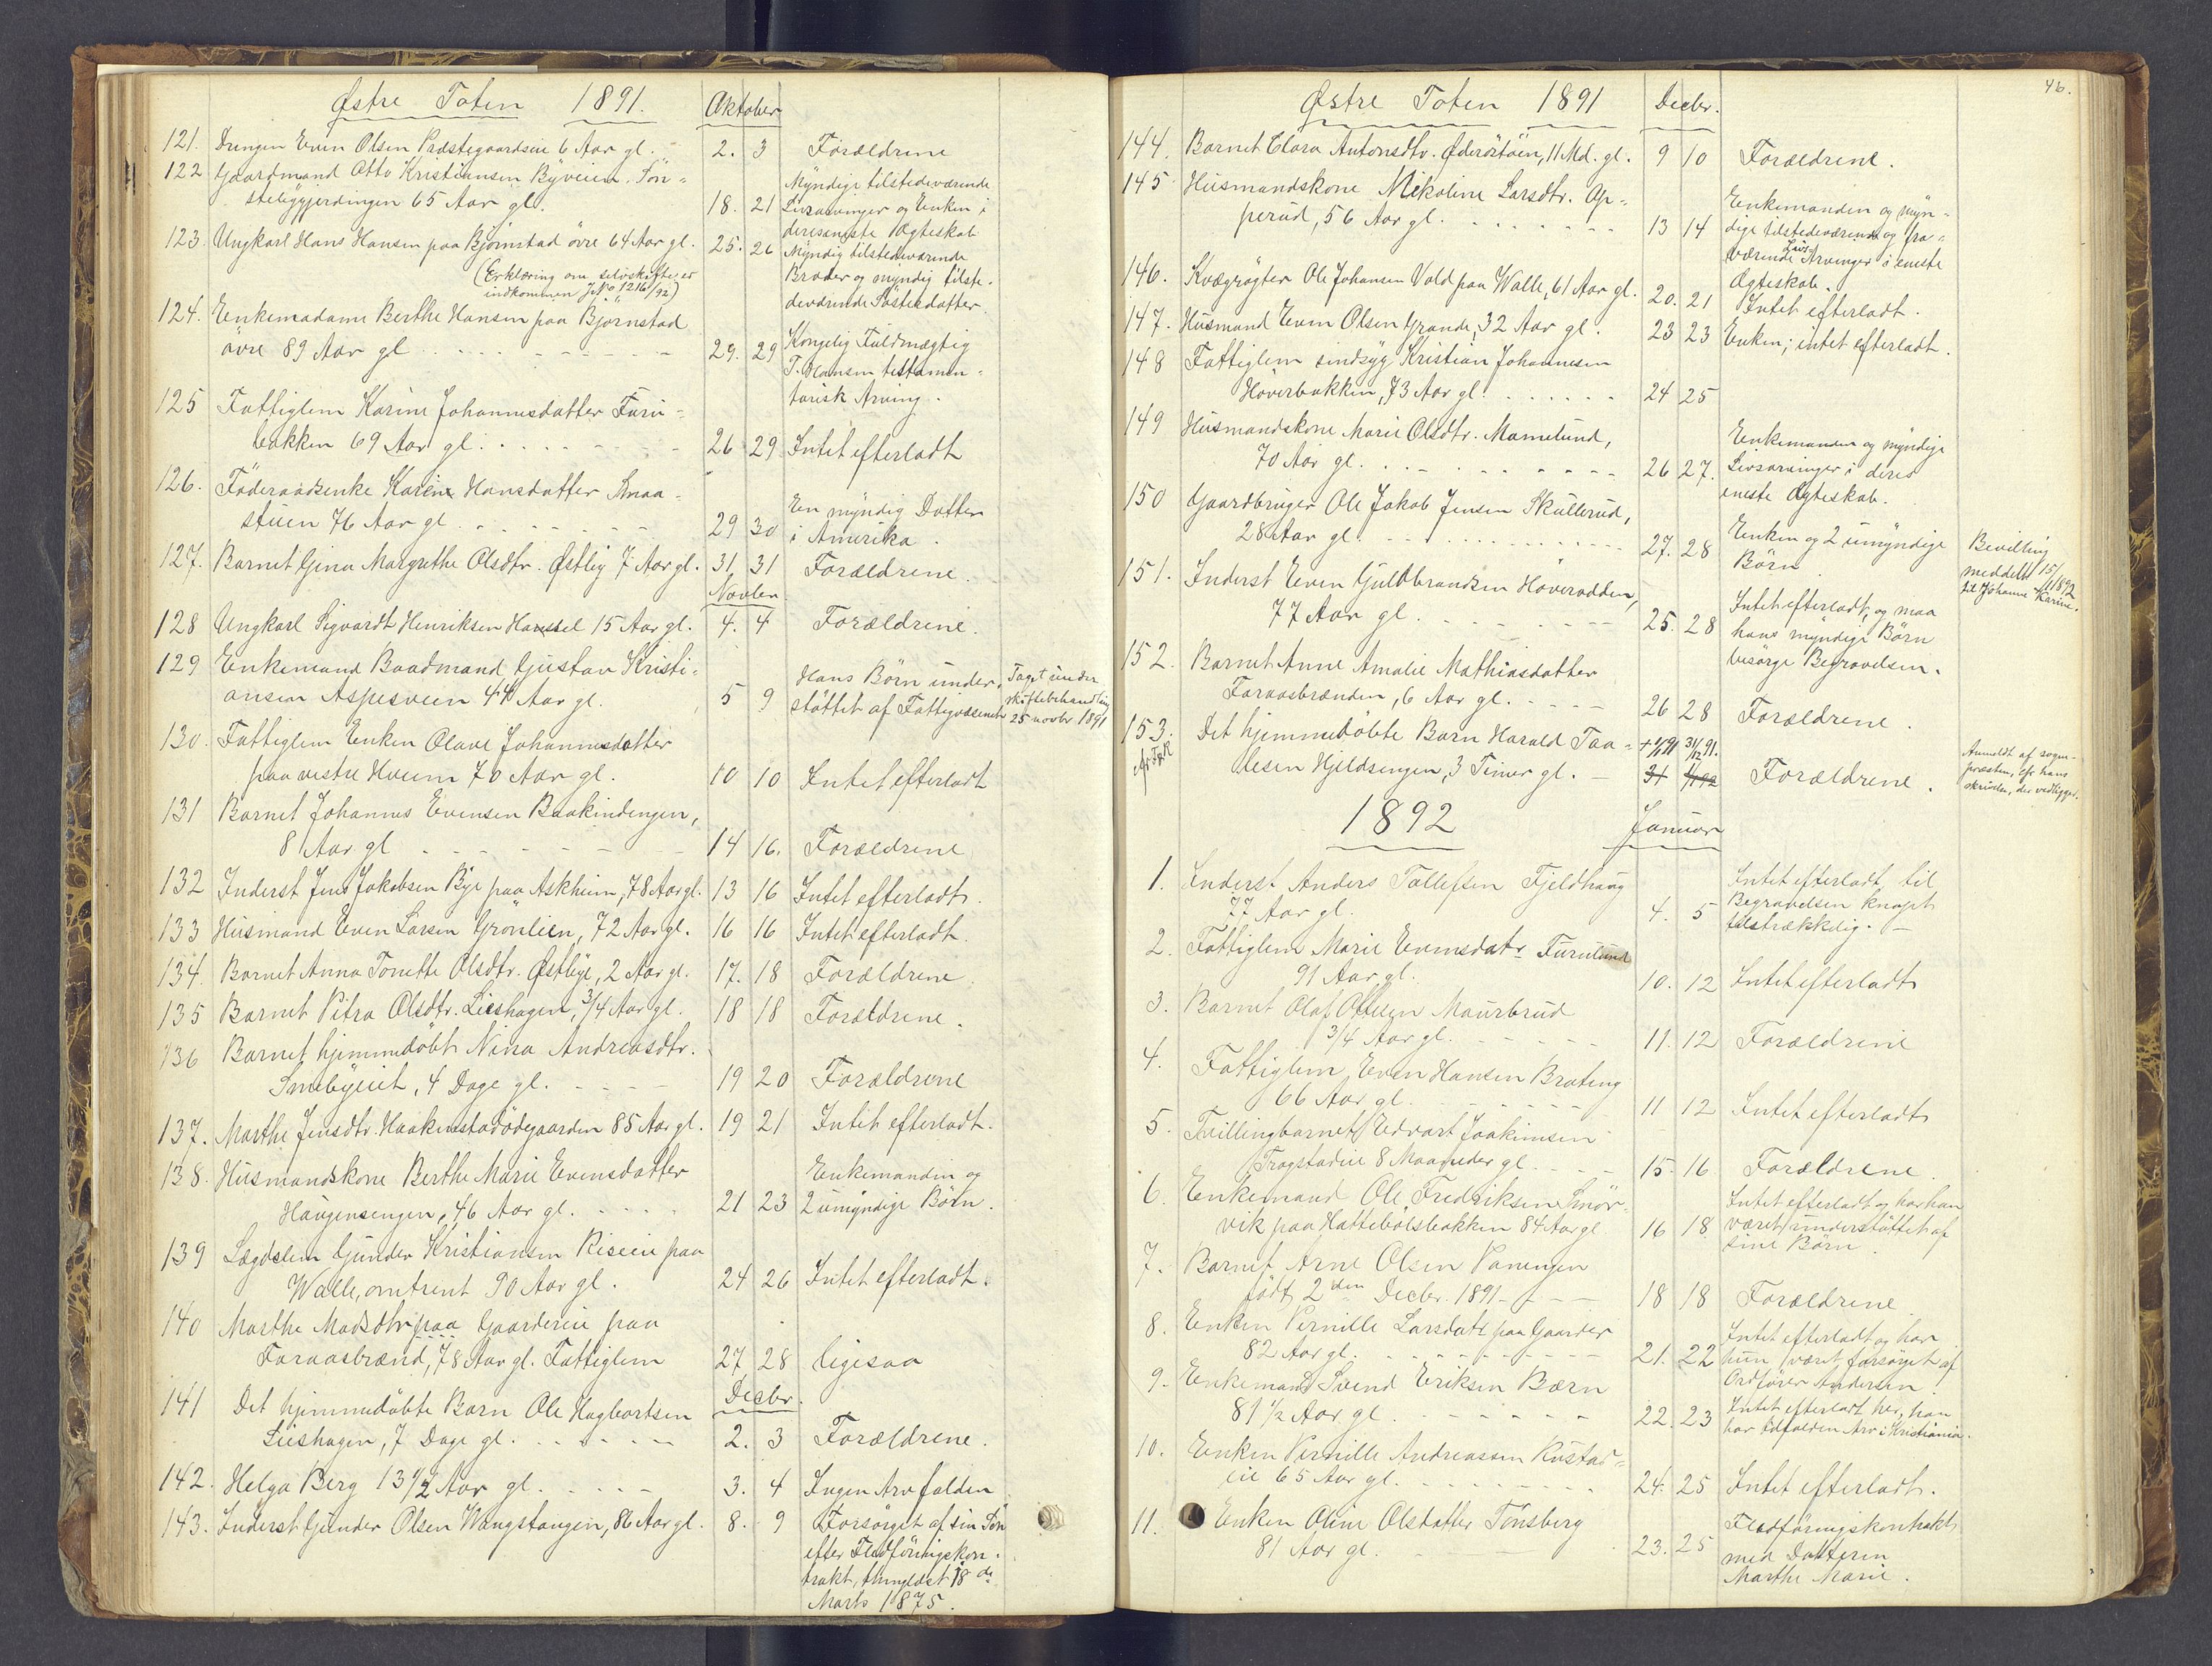 Østre Toten 1891. Oktober
121. Drengen Even Olsen Præstegaardseie 6 Aar gl. 2. 3 Forældrene
122 Gaardmand Otto Kristiansen Byveien. Søn=
steliggjerdingen 65 Aar gl. 18. 21 Myndige tilstedeværende
Livsarvinger og Enken i
deres eneste Ægteskab
123. Ungkarl Hans Hansen paa Bjørnstad øvre 64 Aar gl. 25. 26 Myndig tilstedeværende
Broder og myndig tilste=
deværende Søsterdatter.
(Erklæring om selvskifte er
indkommen J No 1216/92)
124. Enkemadame Berthe Hansen paa Bjørnstad
øvre 89 Aar gl 29. 29 Kongelig Fuldmægtig
T. Hansen testamen=
tarisk Arving.
125 Fattiglem Karine Johannesdatter Furu=
bakken 69 Aar gl. 26 29 Intet efterladt
126. Føderaadsenke Karine Hansdatter Smaa=
stuen 76 Aar gl. 29 30 En myndig Datter
i Amerika.
127. Barnet Gina Margrethe Olsdtr. Østby 7 Aar gl. 31. 31 Forældrene.
Novber.
128 Ungkarl Sigvardt Henriksen 15 Aar gl. 4. 4 Forældrene.
129 Enkemand Baadmand Gustav Kristi=
ansen Aspesveen 44 Aar gl. 5 9 Hans Børn under=
støttet af Fattigvæsenet
Taget under
skiftebehandling
25 novbr 1891
130. Fattiglem Enken Olave Johannesdatter
paa vestre Hveem 70 Aar gl. 10 10 Intet efterladt
131 Barnet Johannes Evensen Baakindengen,
8 Aar gl 14 16. Forældrene
132 Inderst Jens Jakobsen Bye paa Askheim, 78 Aar gl. 13 16 Intet efterladt.
133 Husmand Even Larsen Grønlien, 72 Aar gl. 16 16 Intet efterladt.
134. Barnet Anna Tonette Olsdtr. Østbye, 2 Aar gl. 17. 18 Forældrene
135 Barnet Petra Olsdtr. Lieshagen, 3/4 Aar gl. 18 18 Forældrene.
136 Barnet hjemmedøbt Nina Andreasdtr.
Smebyeiet, 4 Dage gl. 19 20 Forældrene
137. Marthe Jensdtr. Haakenstadødegaarden 85 Aar gl. 19 21 Intet efterladt.
138. Husmandskone Berthe Marie Evensdatter
Haugensengen, 46 Aar gl. 21 23 Enkemanden og
2 umyndige Børn.
139 Lægdslem Gunder Kristiansen Riseeie paa
Walle, omtrent 90 Aar gl. 24 26 Intet efterladt.
140 Marthe Madsdtr paa Gaardereie paa
Faraasbrænd, 78 Aar gl. Fattiglem 27 28 ligesaa
Decbr.
141 Det hjemmedøbte Barn Ole Hagbartsen
Lieshagen, 7 Dage gl. 2. 3 Forældrene.
142. Helga Berg 13 1/2 Aar gl. 3. 4 Ingen Arv falden
143. Inderst Gunder Olsen Wangstangen, 86 Aar gl. 8. 9 Forsørget af sin Søn
efter Fledføringskon=
trakt, thinglæst 18 de
Marts 1875.
46.
Østre Toten 1891 Decbr.
144. Barnet Clara Antonsdtr. 11 Md. gl. 9 10 Forældrene.
145 Husmandskone Nikoline Larsdtr. Ap=
perud, 56 Aar gl. 13 14 Enkemanden og myn=
dige tilstedeværende og fra=
værende Livs Arvinger i eneste
Ægteskab.
146. Kvægrøgter Ole Johansen Vold paa Walle, 61 Aar gl. 20. 21 Intet efterladt.
147. Husmand Even Olsen Grande, 32 Aar gl. 23 23 Enken; intet efterladt.
148 Fattiglem sindsyg Kristian Johannesen
Hoverbakken, 73 Aar gl. 24 25
149 Husmandskone Marie Olsdtr. Mamelund,
70 Aar gl. 26 27. Enkemanden og myndige
Livsarvinger i deres
eneste Ægteskab.
150 Gaardbruger Ole Jakob Jensen Skullerud,
28 Aar gl. 27. 28 Enken og 2 umyndige
Børn
Bevilling
meddelt 15/
11 1892
til Johanne Karine.
151. Inderst Even Guldbrandsen Høverodden,
77 Aar gl. 25. 28 Intet efterladt, og maa
hans myndige Børn
besørge Begravelsen.
152. Barnet Anne Amalie Mathiasdatter
Faraasbrænden, 6 Aar gl. 26 28 Forældrene.
153. Det hjemmedøbte Barn Harald Taa=
lesen Hjeldsengen, 3 Timer gl. 31 1/1 92 Forældrene.
31/12 91.
Anmeldt af sogne-
præsten, efr hans
skrivelse, der vedligger.
1892 Januar
1. Inderst Anders Tollefsen Fjeldhaug
77 Aar gl. 4. 5 Intet efterladt, til
Begravelsen knapt
tilstrækkelig.
2. Fattiglem Marie Evensdatr Furulund
91 Aar gl. 10. 12 Intet efterladt
3. Barnet Olaf Ottesen Maurbrud
1 3/4 Aar gl. 11. 12 Forældrene
4. Fattiglem Even Hansen Brateng
66 Aar gl. 11 12 Intet efterladt
5. Tvillingbarnet Edvart Joakimsen
Fragstadeie 8 Maaneder gl. 15. 16 Forældrene
6. Enkemand Ole Fredriksen Smør=
vik paa Hattebølsbakken 84 Aar gl 16 18 Intet efterladt og har han
været understøttet af
sine Børn.
7. Barnet Arne Olsen Panengen
født 2 den Decbr. 1891 18 18 Forældrene
8. Enken Pernille Larsdatr paa Gaarder
82 Aar gl. 21. 22 Intet efterladt og har
hun været forsørget af
Ordfører Andersen.
9. Enkemand Svend Eriksen Bærn
81 1/2 Aar gl. 22. 23 Intet efterladt her, han
har udfalden Arv i Kristiania.
10. Enken Pernille Andreassen Rustad=
eie 65 Aar gl. 24. 25 Intet efterladt.
11. Enken Oline Olsdatter Tønsberg
81 Aar gl. 23. 25 Fledføringskontrakt
med Datteren
Marthe Marie.